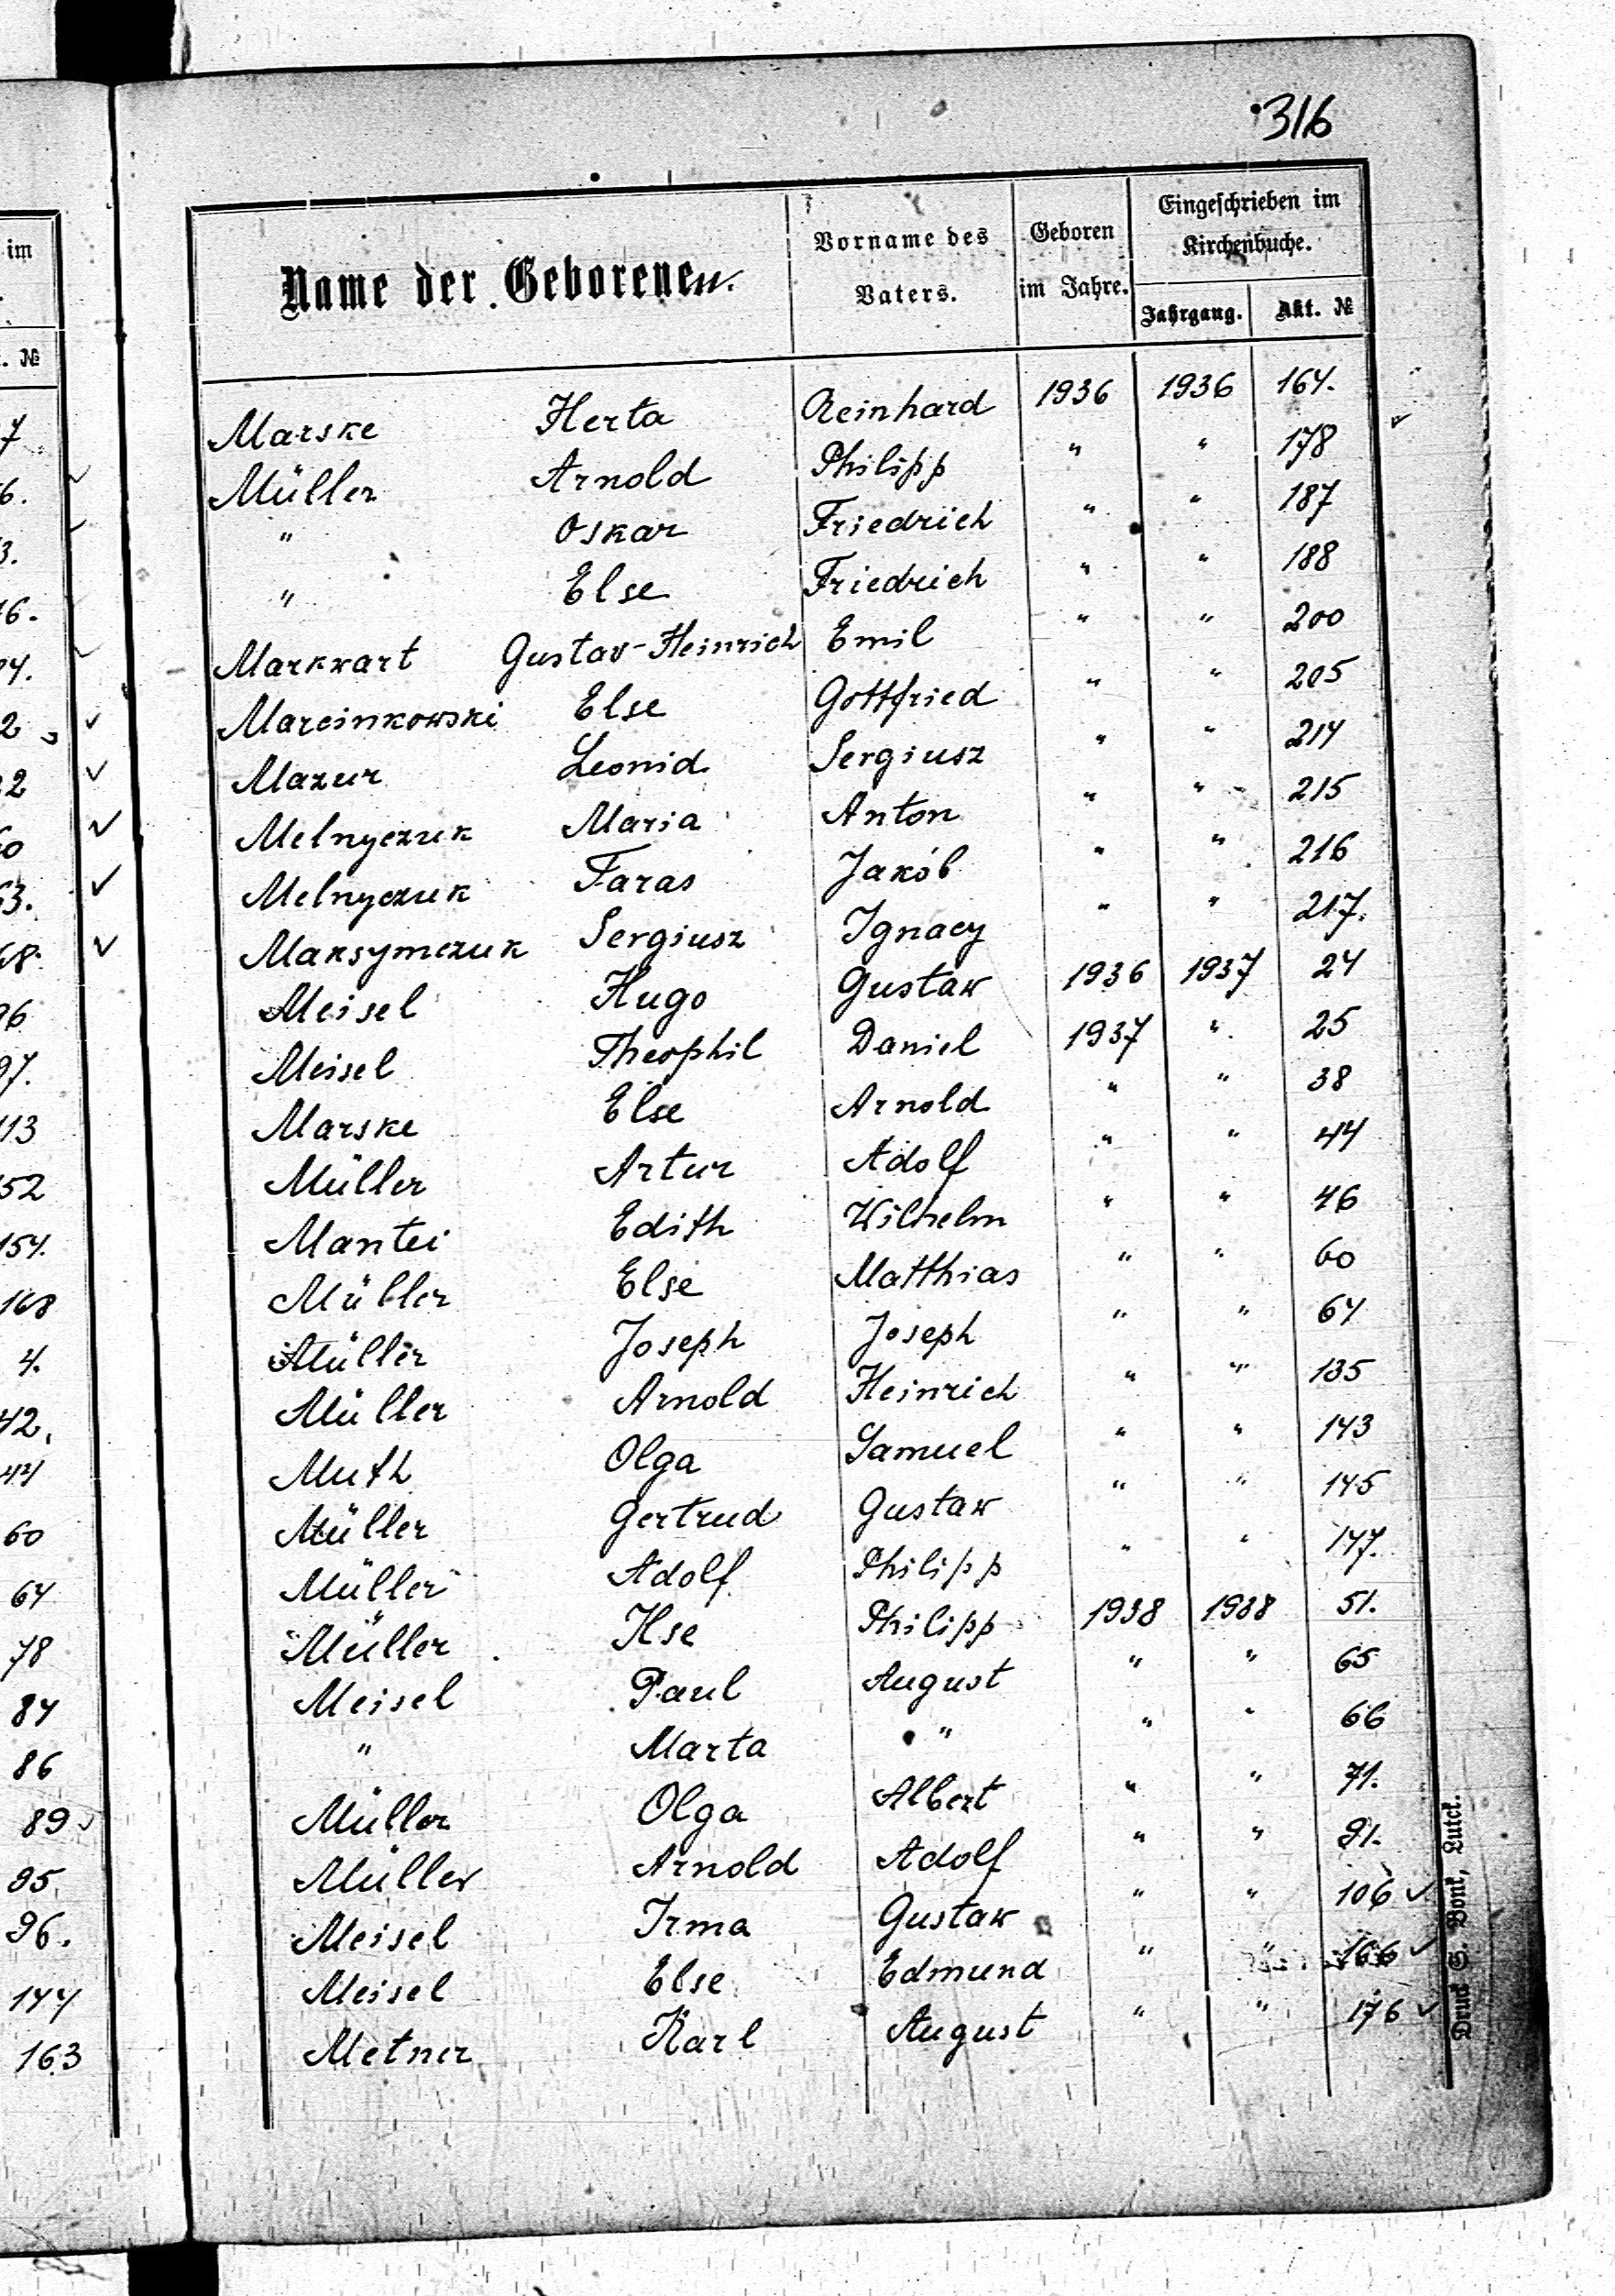 316
im
. №
7
6.
3.
16.
4.
2
22
60
63.
68.
96
97.
113
152
154.
168
4.
42.
44
60
64
78
84
86
89
95
96.
144
163
Name der Geborenen.
Vorname des Vaters.
Geboren im Jahre.
Eingeschrieben im Kirchenbuche.
Jahrgang.
Akt. №
Marske Herta Reinhard 1936 1936 164.
Müller Arnold Philipp " " 178
" Oskar Friedrich " " 187
" Else Friedrich " " 188
Markwart Gustav-Heinrich Emil " " 200
Marcinkowski Else Gottfried " " 205
Mazur Leonid Sergiusz " " 214
Melnyczuk Maria Anton " " 215
Melnyczuk Taras Jakób " " 216
Maksymczuk Sergiusz Ignacy " " 217.
Meisel Hugo Gustaw 1936 1937 24
Meisel Theophil Daniel 1937 " 25
Marske Else Arnold " " 38
Müller Artur Adolf " " 44
Mantei Edith Wilhelm " " 46
Müller Else Matthias " " 60
Müller Joseph Joseph " " 64
Müller Arnold Heinrich " " 135
Muth Olga Samuel " " 143
Müller Gertrud Gustaw " " 145
Müller Adolf Philipp " " 147.
Müller Ilse Philipp 1938 1938 51.
Meisel Paul August " " 65
" Marta " " " 66
Müller Olga Albert " " 71.
Müller Arnold Adolf " " 91.
Meisel Irma Gustaw " " 106 ✓
Meisel Else Edmund " " 166 ✓
Metner Karl August " " 176 ✓
Druck S. Bonk, Lutck.